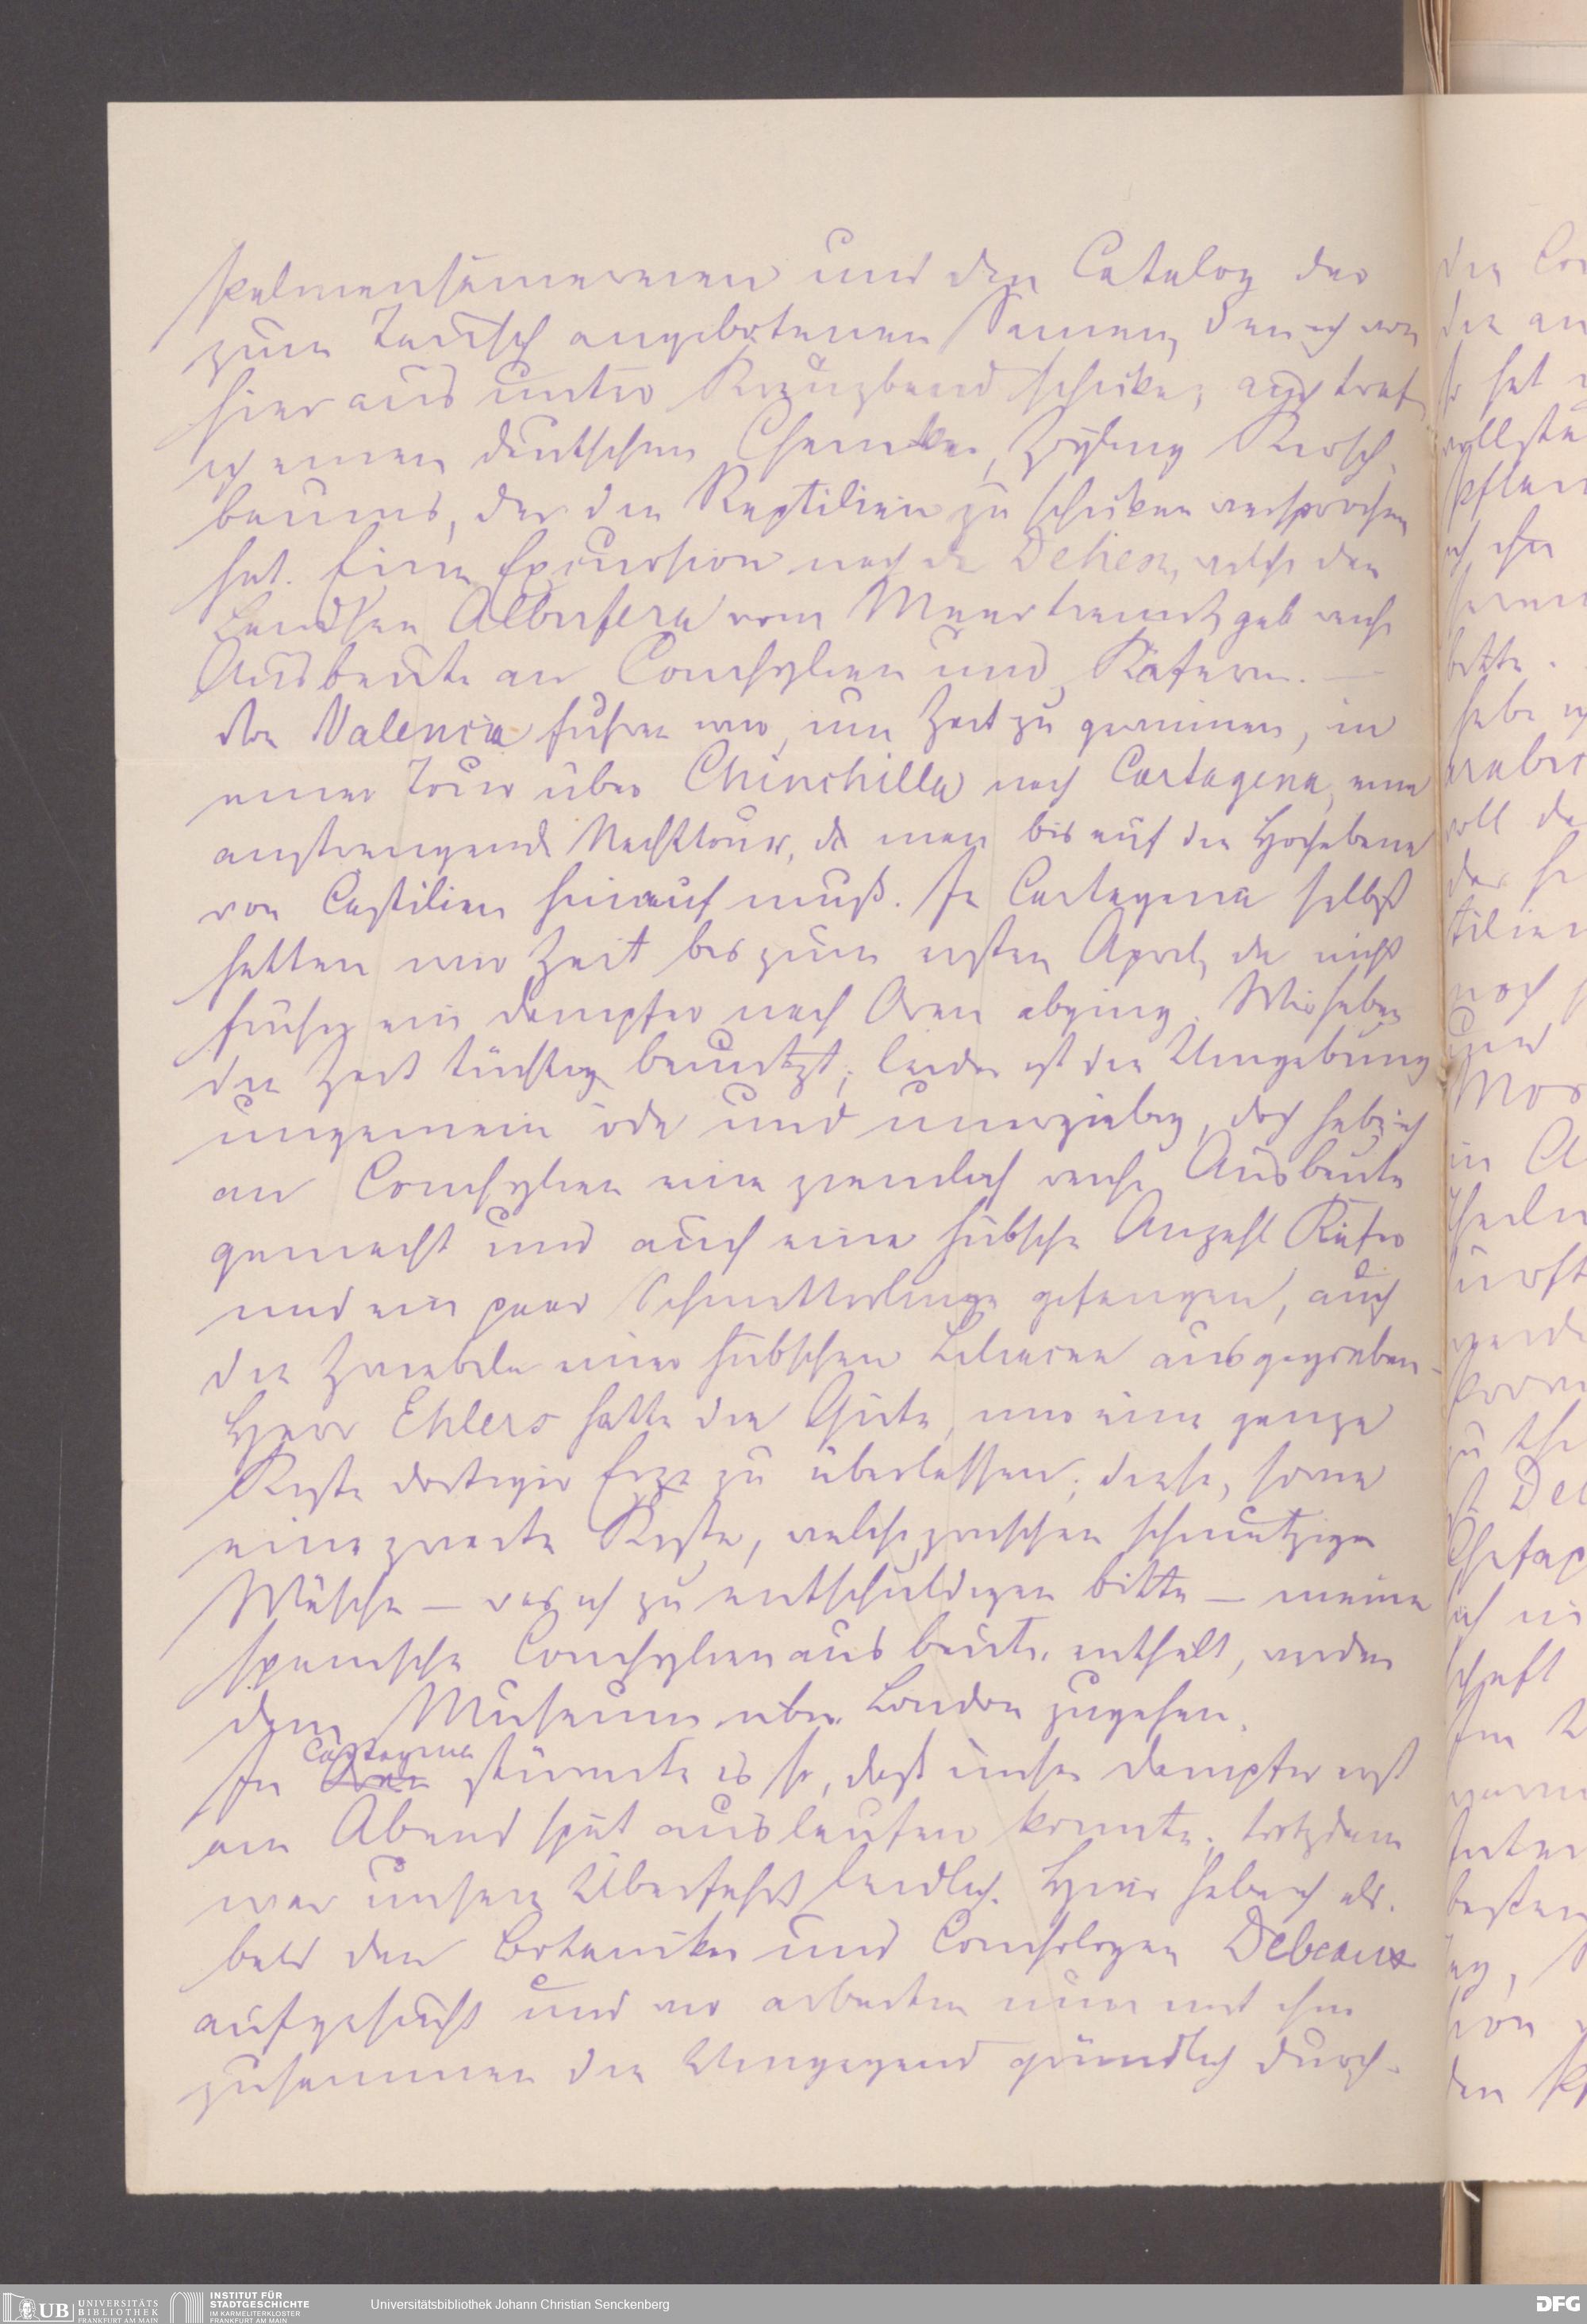 Palmensämereien und den Catalog der
zum Tausch angebotenen Samen, den ich von
hier aus unter Kreuzband schicke; auch traf
ich einen deutschen Chemiker, Zögling Kirsch-
baums, der die Reptilien zu schicken versprochen
hat. Eine Excursion nach der Dehesa, welche den
Landsee Albufera vom Meer trennt, gab reiche
Ausbeute an Conchylien und Käfern. —
Von Valencia fuhren wir, um Zeit zu gewinnen, in
einer Tour über Chinchilla nach Cartagena, eine
anstrengende Nachttour, da man bis auf die Hochebene
von Castilien hinauf muß. In Cartagena selbst
hatten wir Zeit bis zum ersten April, da nicht
früher ein Dampfer nach Oran abging. Wir haben
die Zeit tüchtig benutzt; leider ist die Umgebung
ungemein öde und unergiebig, doch habe ich
an Conchylien eine ziemlich reiche Ausbeute
gemacht und auch eine hübsche Anzahl Käfer
und ein paar Schmetterlinge gefangen, auch
die Zwiebeln einer hübschen Liliacee ausgegraben.
Herr Ehlers hatte die Güte, mir eine ganze
Kiste dortiger Erze zu überlassen; diese, sowie
eine zweite Kiste, welche zwischen schmutziger
Wäsche – was ich zu entschuldigen bitte – meine
spanische Conchylienausbeute enthält, werden
dem Museum über London zugehen.
In Cartagena stürmte es so, daß unser Dampfer erst
am Abend spät auslaufen konnte; trotzdem
war unsere Überfahrt leidlich. Hier habe ich als-
bald den Botaniker und Conchologen Debeaux
aufgesucht und wir arbeiten nun mit ihm
zusammen die Umgegend gründlich durch.
UB UNIVERSITÄTS BIBLIOTHEK FRANKFURT AM MAIN
INSTITUT FÜR STADTGESCHICHTE IM KARMELITERKLOSTER FRANKFURT AM MAIN
Universitätsbibliothek Johann Christian Senckenberg
DFG